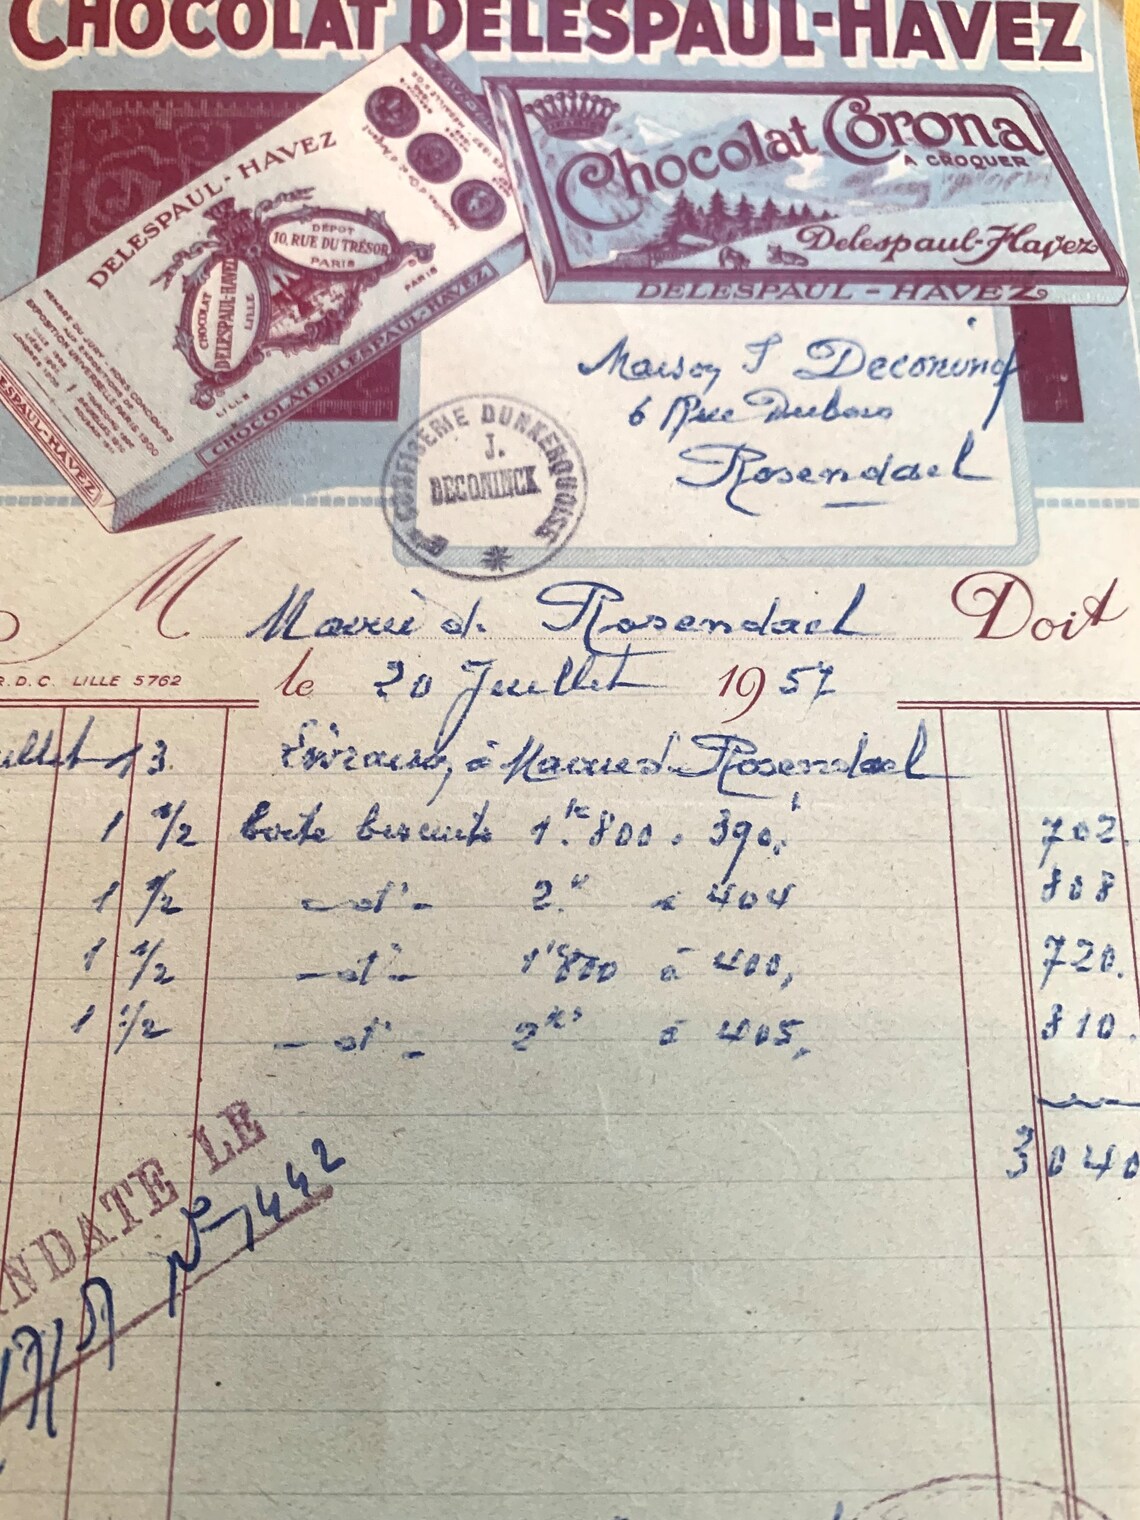 CHOCOLAT DELESPAUL-HAVEZ
DELESPAUL-HAVEZ
DÉPOT
10, RUE DU TRÉSOR
PARIS
CHOCOLAT
DELESPAUL-HAVEZ
LILLE
PARIS
LILLE
MEMBRE DU JURY - HORS CONCOURS
AUX EXPOSITIONS DE
EXPOSITION UNIVERSELLE PARIS 1900
CHOCOLAT DELESPAUL-HAVEZ
ESPAUL-HAVEZ
Chocolat Corona
A CROQUER
Delespaul-Havez
DELESPAUL - HAVEZ
Maison J Deconinck
6 Rue Dubois
Rosendael
CONFISERIE DUNKERQUOISE
J.
DECONINCK
M Mairie de Rosendael Doit
R.D.C. LILLE 5762
le 20 Juillet 1957
uillet 13. Livraison à Mairie de Rosendael
1 1/2 boîte biscuits 1.k 800 à 390, 702.
1 1/2 - d° - 2.k à 404 808
1 1/2 - d° - 1k800 à 400, 720.
1 1/2 - d° - 2ks à 405, 810.
3040
NDATE LE
N° 1442